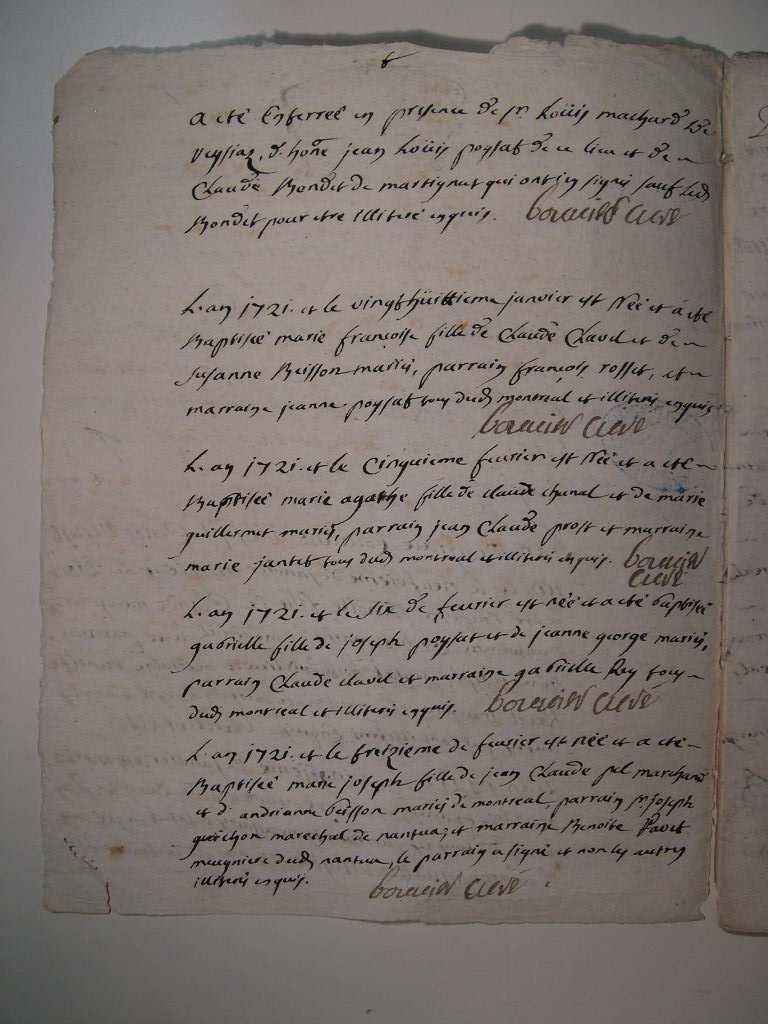 a été Enterreé en presence de sr. Loüis machard de
veyziaz, d. hone. jean Loüis poysat de ce lieu et de
Claude Bondet de martignat qui ont icy signé sauf led.
Bondet pour etre illiteré enquis. bouvier Curé
L'an 1721. et le vingthüittieme janvier est Neé et a eté
Baptiseé marie françoise fille de Claude Clavel et de
Susanne Beisson mariés, parrain françois rosset, et
marraine jeanne poysat tous dud. montreal et illiterés enquis.
Curé
L'an 1721. et le Cinquieme fevrier est Neé et a eté
Baptiseé marie agathe fille de claude chanal et de marie
guillermet mariés, parrain jean Claude prost et marraine
marie jantet tous dud. montreal et illiterés enquis.
Curé
L'an 1721. et le Six de fevrier est neé et a eté baptiseé
gabrielle fille de joseph poysat et de jeanne george mariés,
parrain Claude clavel et marraine gabrielle Rey tous
dud. montreal et illiterés enquis. Curé
L'an 1721. et le treizieme de fevrier est neé et a eté
Baptiseé marie joseph fille de jean Claude marchand
et d. andrianne beisson mariés de montreal, parrain sr. joseph
guichon marechal de nantua, et marraine Benoite
meugniere dud. nantua, le parrain a signé et non les autres
illiterés enquis. Curé